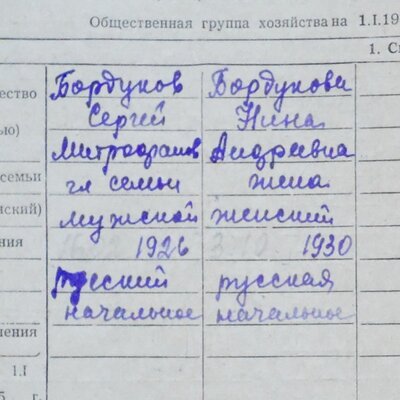 Общественная группа хозяйства на 1.I.19
1. С
ество Бордуков Бордукова
ью) Сергей Нина
Митрофанов Андреевна
семьи гл семьи жена
нский) мужской женский
ния 1926 1930
русский русская
начальное начальное
нения
1.I
5 г.